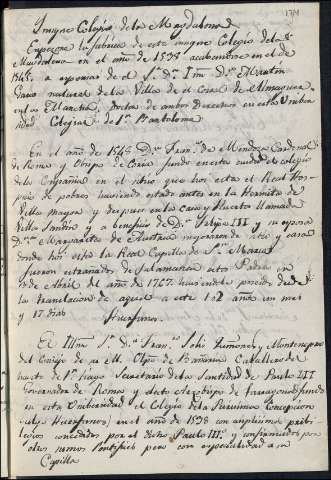 174
Insigne Colegio de la Magdalena
Empezose la fabrica de este insigne Colegio de la
Magdalena en el año de 1538 acabandose en el de
1545, a expensas de el S. Dn. Martin
natural de la Villa de el Corral de Almaguer
en la Mancha, Doctor de ambos Derechos en esta Univer
sidad Colegial de Sn. Bartolome
En el año de 1545 Dn. Franco. de Mendoza Cardenal
de Roma y Obispo de Coria fundo en esta ciudad el colegio
de la Compañia en el sitio que hoy esta el Real Hos-
picio de pobres haviendo estado antes en la Hermita de
Villa mayor y despues en la Casa y Huerta llamada
Villa Sandin y a beneficio de Dn. Felipe III y su esposa
Da. Margarita de Austria mejoraron de sitio y casa
donde hoy esta la Real Capilla de Sn. Marcos
fueron estrañados de Salamanca estos Padres en
de Abril del año de 1767 haviendo pasado desde
la translacion de aquel a este 102 años un mes
y 17 dias
Huerfanos.
El Illmo. Sr. Dn. Franco. Solis Quiñones y Montenegro
del Consejo de su M. Obpo. de Bañarea Caballero del
havito de Sn. Tiago Secretario de la Santidad de Paulo III
Governador de Roma y electo Arzobispo de Tarragona fundo
en esta Universidad el Colegio de la Purisima Concepcion
(alias Huerfanos) en el año de 1538 con amplisimos privi-
legios concedidos por el dicho Paulo III. y confirmados por
otros sumos Pontifices pero con especialidad a su
Capilla